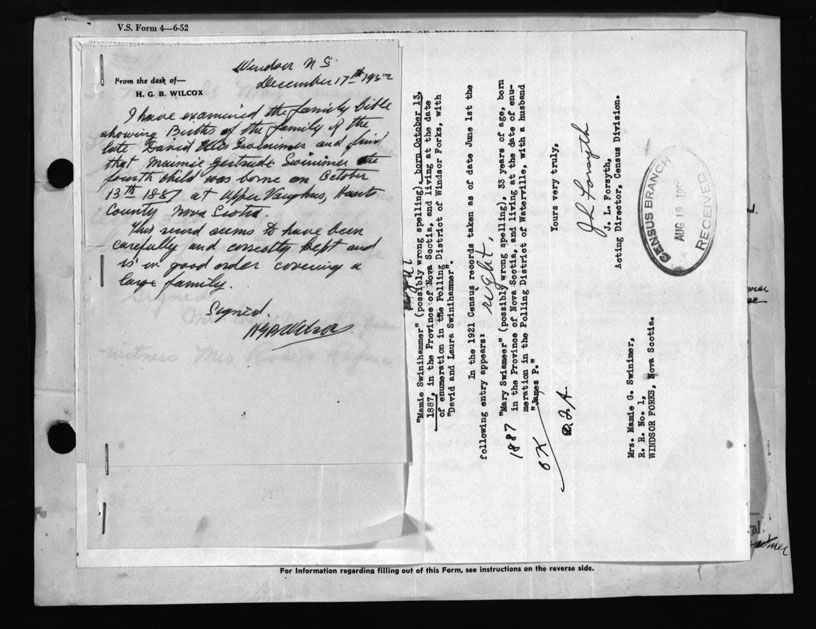 V.S. Form 4—6-52
From the desk of—
H. G. B. WILCOX
Windsor N S
December 17th 1952
I have examined the family bible
showing Births of the family of the
late David Otis Swinimer and find
that Maimie Gertrude Swinimer the
fourth child was borne on October
13th 1887 at Upper Vaughns, Hants
County Nova Scotia.
This record seems to have been
carefully and correctly kept and
is in good order covering a
large family.
Signed
HGB Wilcox
right
"Mamie Swinihammer" (possibly wrong spelling), born October 13,
1887, in the Province of Nova Scotia, and living at the date
of enumeration in the Polling District of Windsor Forks, with
"David and Laura Swinihammer".
In the 1921 Census records taken as of date June 1st the
following entry appears:
right
"Mary Swiameer" (possibly wrong spelling), 33 years of age, born
1887 in the Province of Nova Scotia, and living at the date of enu-
meration in the Polling District of Waterville, with a husband
"James P."
OK
Yours very truly,
J L Forsyth
J. L. Forsyth,
Acting Director, Census Division.
CENSUS BRANCH
AUG 19
RECEIVED
Mrs. Mamie G. Swinimer,
R. R. No. 1,
WINDSOR FORKS, Nova Scotia.
Signed
witness Mrs
For Information regarding filling out of this Form, see instructions on the reverse side.